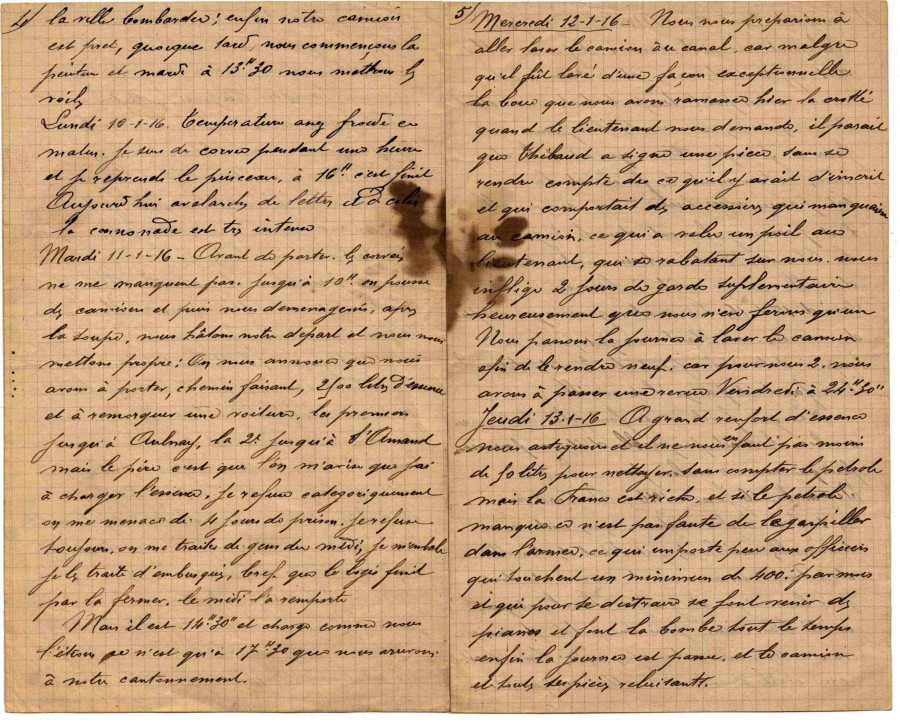 4) la ville bombardée; enfin notre camion
est pret, quoique tard, nous commençons la
peinture et mardi à 13ʰ30 nous mettrons les
voiles
Lundi 10-1-16. Temperature assez froide ce
matin. Je suis de corvée pendant une heure
et je reprends le pinceau, à 16ʰ c'est finit
Aujourd'hui avalanche de lettres et de colis
la cannonade est tres intense
Mardi 11-1-16 - Avant de partir. les corvées
ne me manquent pas. Jusqu'à 10ʰ on pousse
des camions et puis nous demenageons, apres
la soupe, nous hâtons notre depart et nous nous
mettons propre; On nous annonce que nous
avons à porter, chemin faisant, litres d'essence
et à remorquer une voiture, les premiers
jusqu'à Aulnay, la 2ᵉ jusqu'à St Amand
mais le pire c'est que l'on m'avise que j'ai
à charger l'essence. Je refuse categoriquement
on me menace de 4 jours de prison. Je refuse
toujours, on me traite de gens du midi, je m'emballe
je les traite d'embusqués, bref que le logis finit
par la fermer. le midi l'a remporté
Mais il est 14ʰ30 et chargé comme nous
l'étions ce n'est qu'à 17ʰ30 que nous arrivons
à notre cantonnement.
5) Mercredi 12-1-16 - Nous nous preparions à
aller laver le camion au canal, car malgre
qu'il fût lavé d'une façon exceptionnelle
la boue que nous avons ramassé hier l'a crotté
quand le lieutenant nous demande, il parait
que Thibaud a signé une piece sans se
rendre compte de ce qu'il y avait d'inscrit
et qui comportait des accessoires qui manquaient
au camion, ce qui a valu un poil au
lieutenant, qui se rabatant sur nous. nous
inflige 2 jours de garde suplementaire
heureusement que nous n'en ferons qu'un
Nous passons la journée à laver le camion
afin de le rendre neuf. car pour nous 2. nous
avons à passer une revue Vendredi à ʰ30
Jeudi 13-1-16 A grand renfort d'essence
nous astiquons et il ne nous en faut pas moins
de 50 litres pour nettoyer. sans compter le petrole
mais la France est riche, et si le petrole
manque ce n'est pas faute de le gaspiller
dans l'armée, ce qui importe peu aux officiers
qui touchent un minimum de 400ᶠ par mois
et qui pour se distraire se font venir des
pianos et font la bombe tout le temps
enfin la journée est passée, et le camion
et toutes ses pièces reluisants.